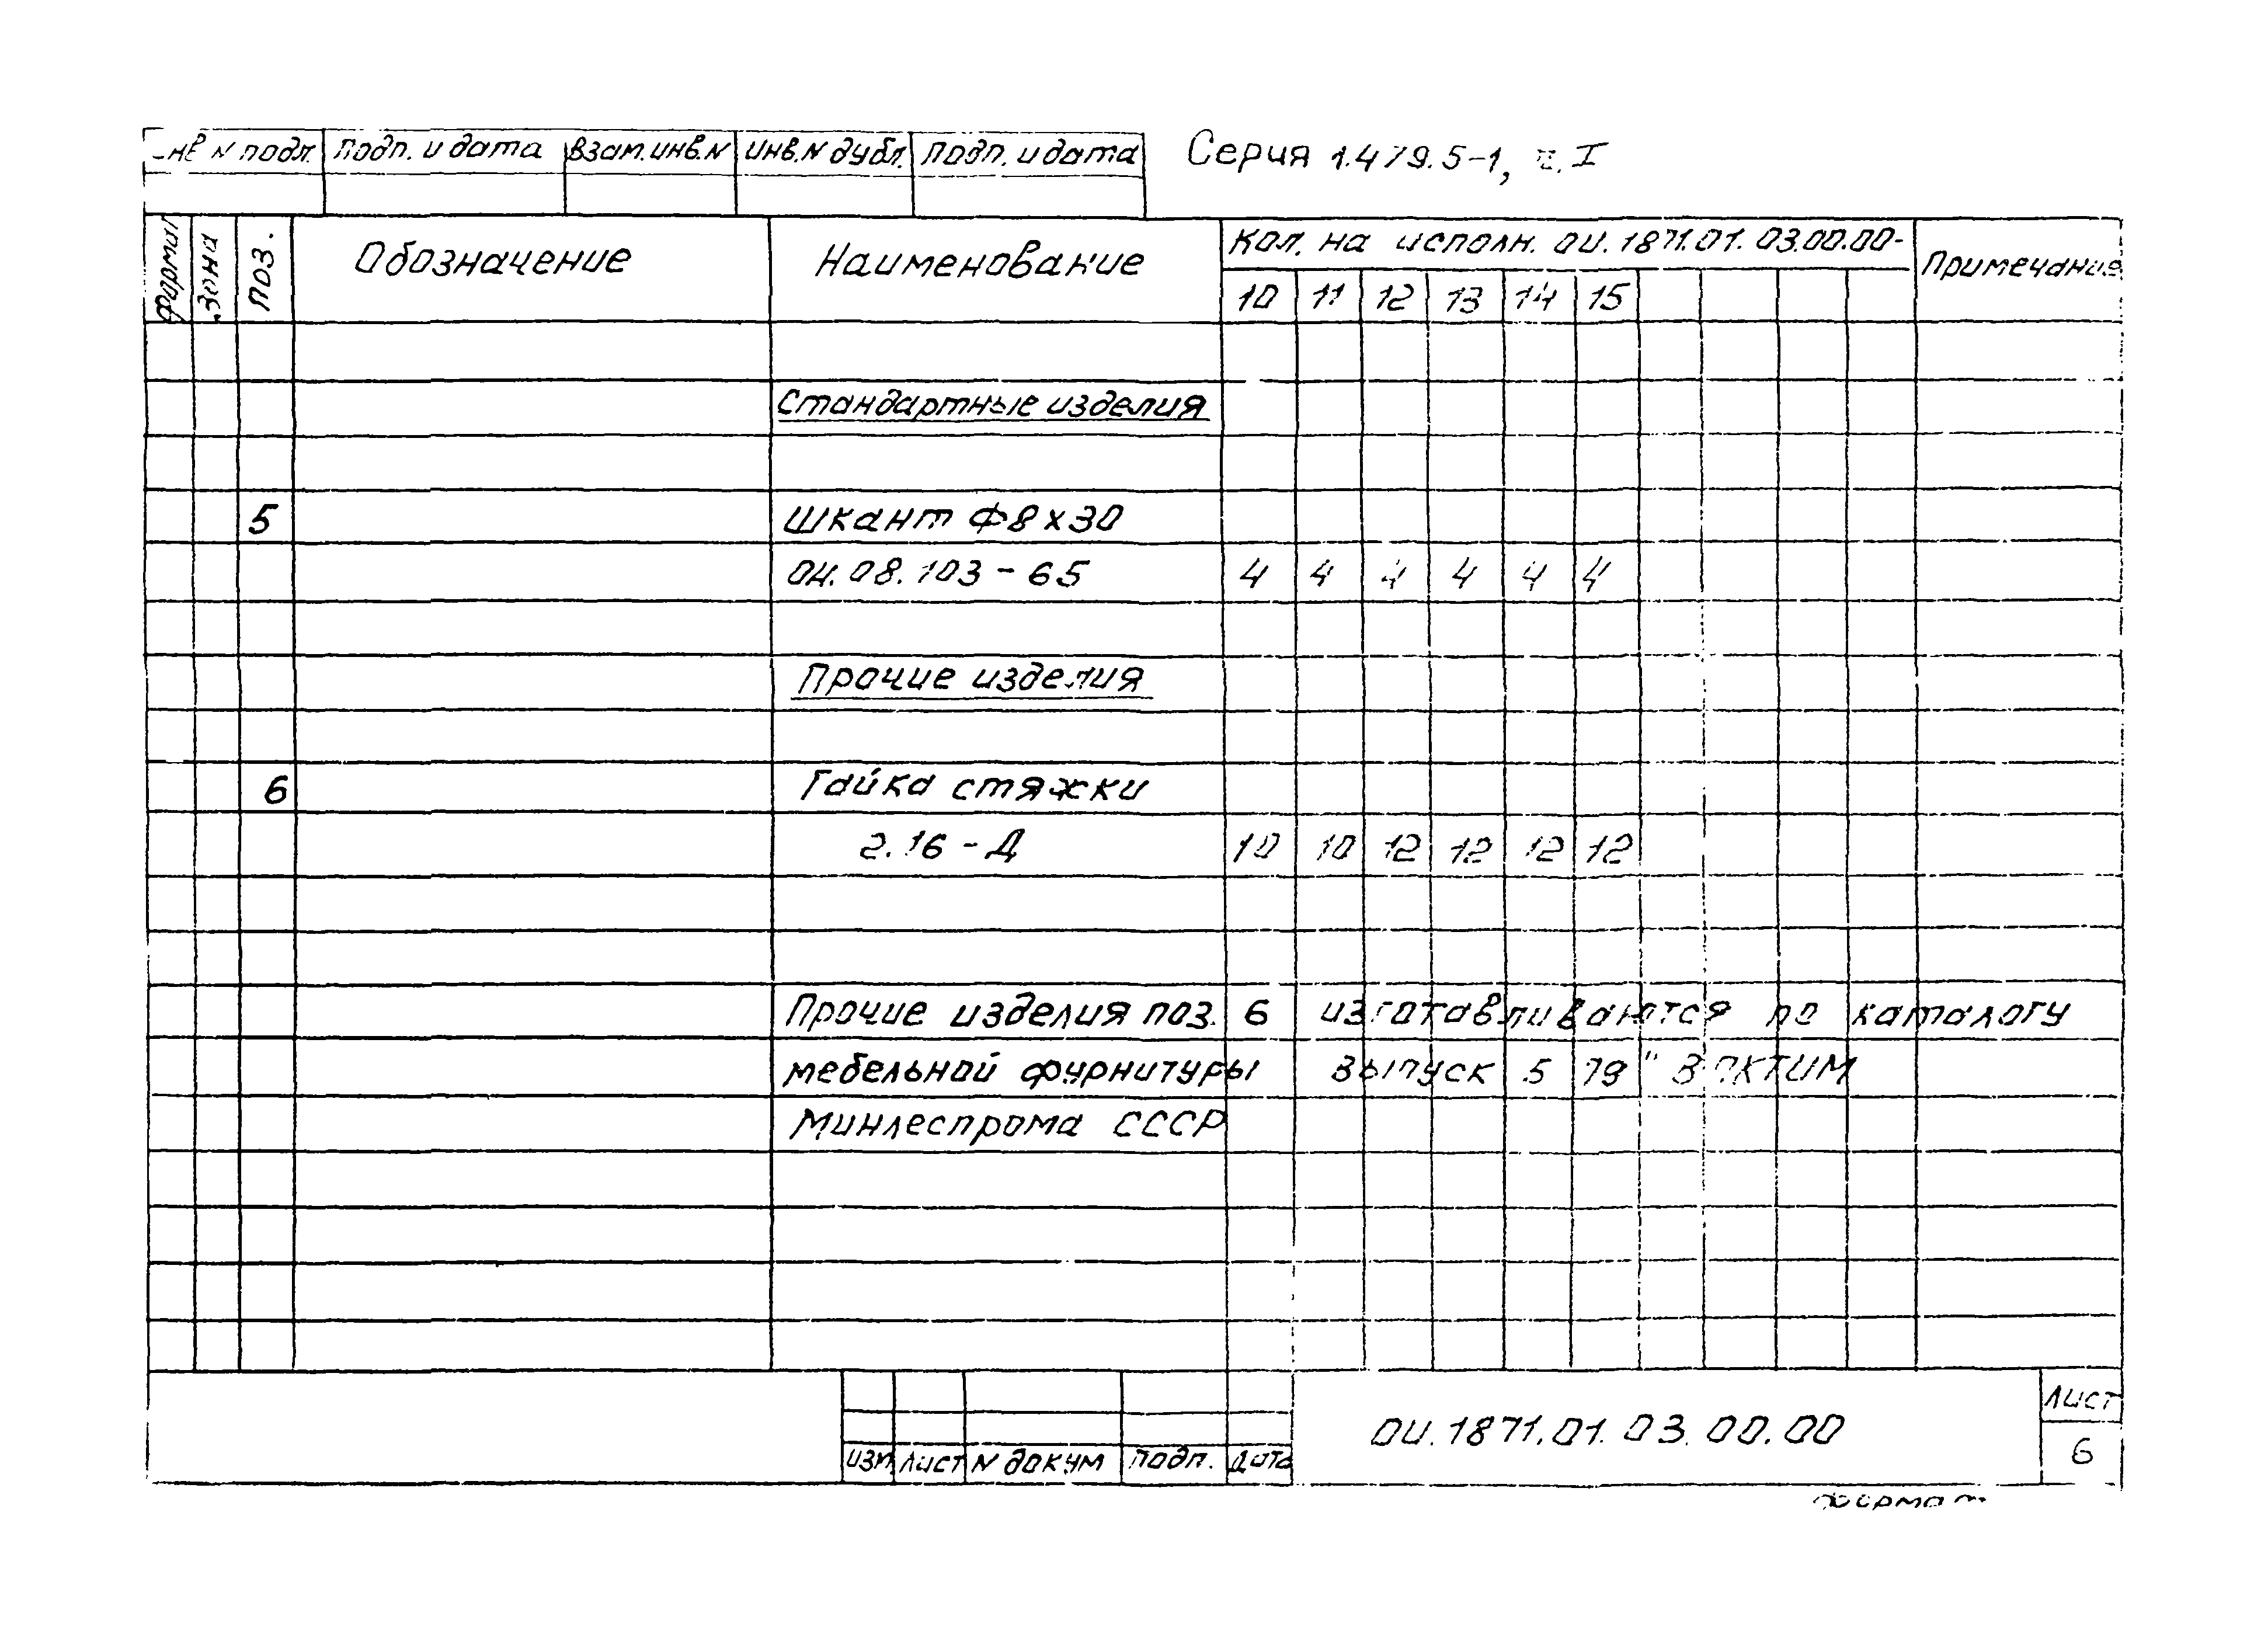 инв N подл. подп. и дата Взам.инв.N инв.N дубл. подп. и дата Серия 1.479.5-1, ч. I
формат зона поз. Обозначение Наименование Кол. на исполн. ОИ.1871.01.03.00.00- Примечание
10 11 12 13 14 15
Стандартные изделия
5 Шкант Ф8х30
ОН.08.103-65 4 4 4 4 4 4
Прочие изделия
6 Гайка стяжки
2.16-Д 10 10 12 12 12 12
Прочие изделия поз. 6 изготавливаются по каталогу
мебельной фурнитуры выпуск 5 79" ВПКТИМ
Минлеспрома СССР
ОИ.1871.01.03.00.00 Лист
изм лист N докум подп. дата 6
формат